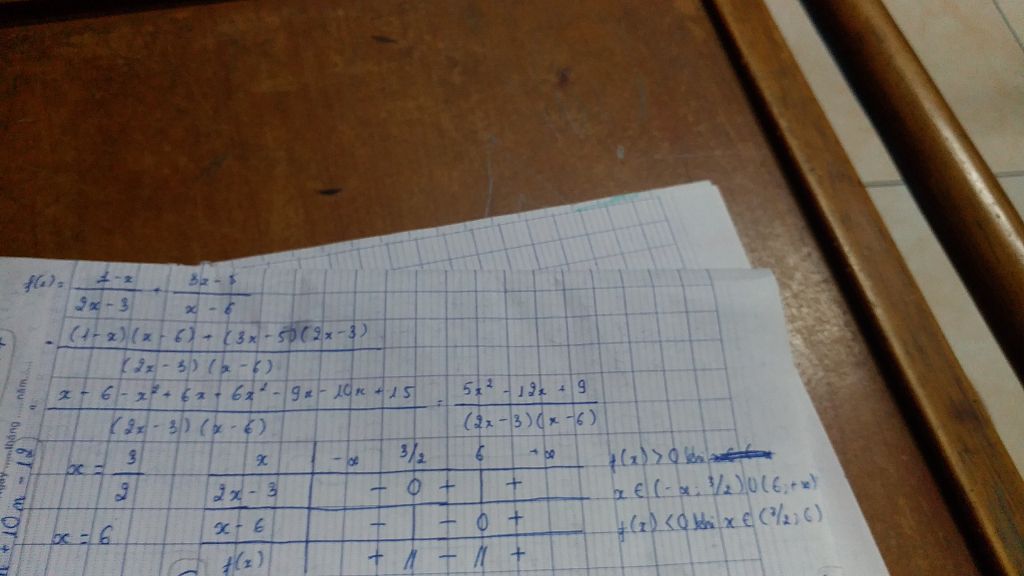 f(x) = \frac{1-x}{2x-3} + \frac{3x-5}{x-6}
= \frac{(1-x)(x-6) + (3x-5)(2x-3)}{(2x-3)(x-6)}
= \frac{x - 6 - x² + 6x + 6x² - 9x - 10x + 15}{(2x-3)(x-6)} = \frac{5x² - 12x + 9}{(2x-3)(x-6)}
x = \frac{3}{2}
x = 6
x | -∞ 3/2 6 +∞
2x-3 | - 0 + | +
x-6 | - | - 0 +
f(x) | + || - || +
f(x) > 0 khi
x ∈ (-∞; 3/2) U (6; +∞)
f(x) < 0 khi x ∈ (3/2; 6)
+ 10m = 12
tháng
năm